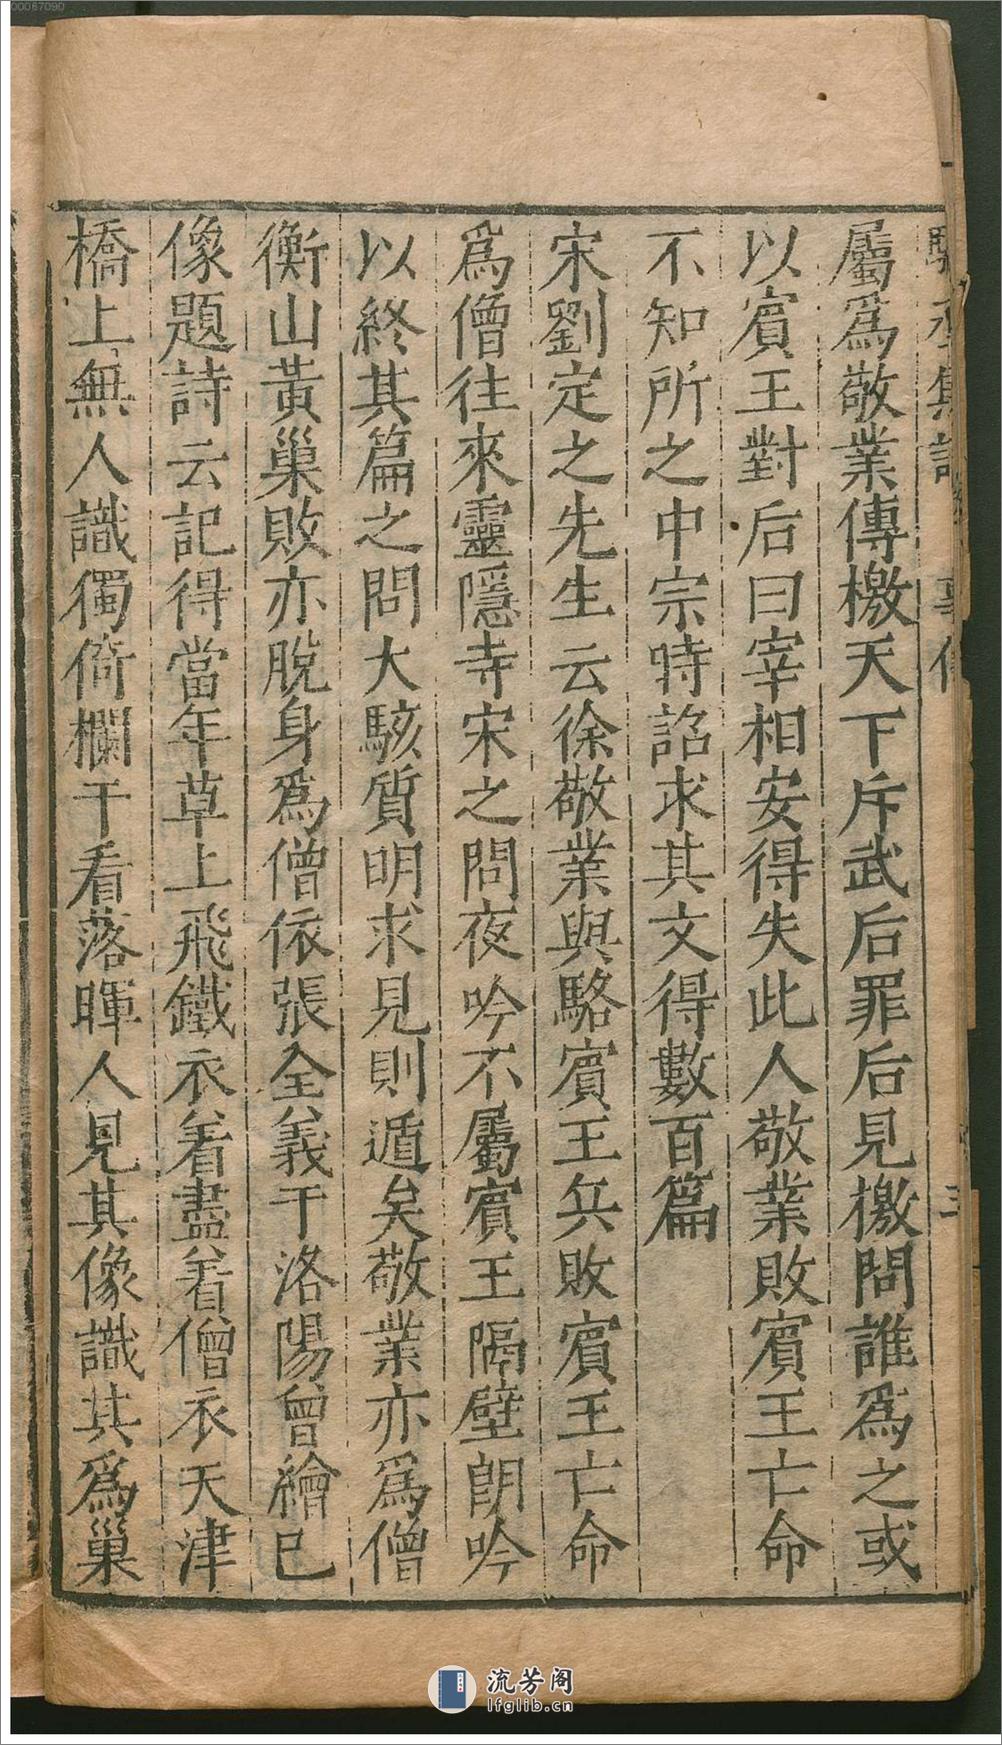 00067090
屬爲敬業傳檄天下斥武后罪后見檄問誰爲之或
以賓王對后曰宰相安得失此人敬業敗賓王亡命
不知所之中宗時詔求其文得數百篇
宋劉定之先生云徐敬業與駱賓王兵敗賓王亡命
爲僧往來靈隱寺宋之問夜吟不屬賓王隔壁朗吟
以終其篇之問大駭質明求見則遁矣敬業亦爲僧
衡山黃巢敗亦脫身爲僧依張全義于洛陽曾繪巳
像題詩云記得當年草上飛鐵衣着盡着僧衣天津
橋上無人識獨倚欄干看落暉人見其像識其爲巢
流芳阁
lfglib.cn